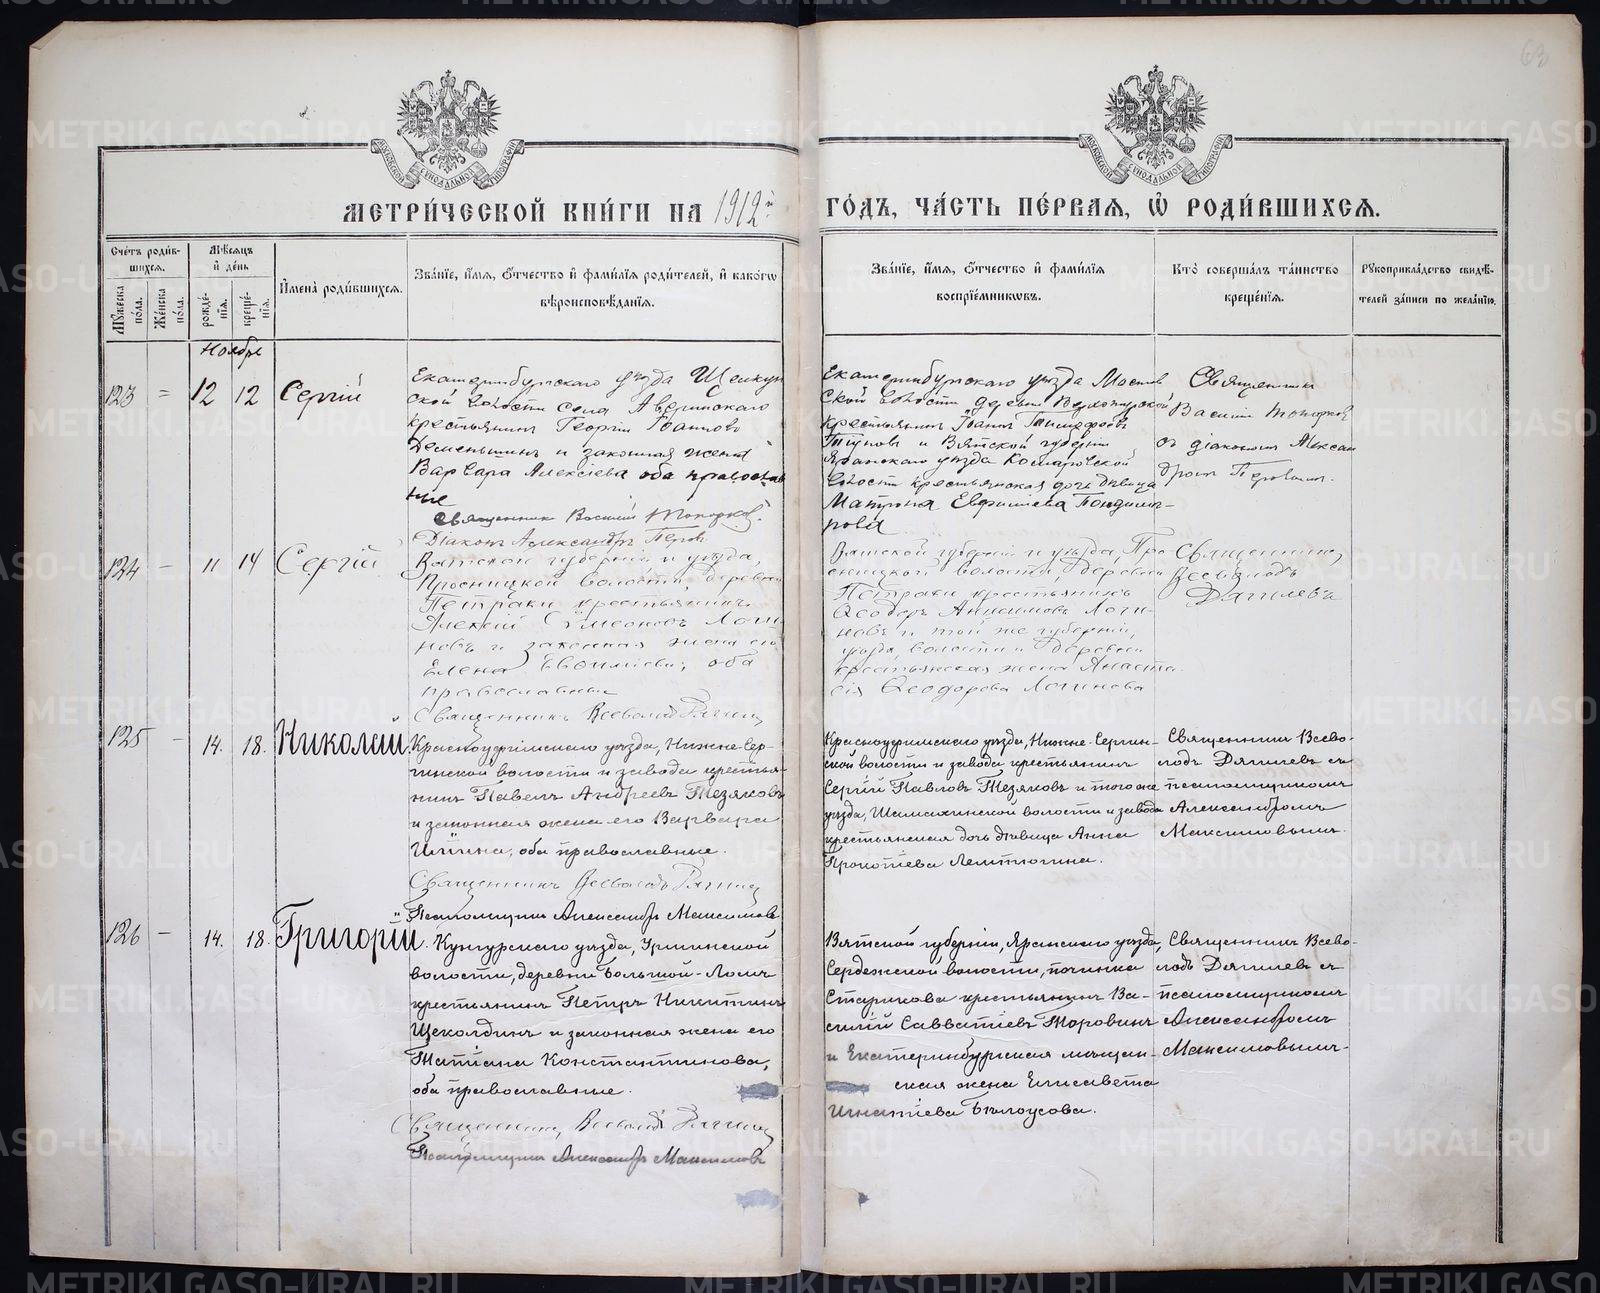 63
МЕТРИ́ЧЕСКОЙ КНИ́ГИ НА 1912й ГО́ДЪ, ЧА́СТЬ ПЕ́РВАЯ, Ѡ РОДИ́ВШИХСЯ.
Сче́тъ роди́в-
шихся.
Мѣ́сяцъ
и де́нь
Му́жеска
по́ла.
Же́нска
по́ла.
рожде́-
нїя.
креще́-
нїя.
Имена̀ роди́вшихся.
Зва́нїе, и́мя, ѻ́тчество и фами́лїя роди́телей, и како́гѡ
вѣроисповѣ́данїя.
Зва́нїе, и́мя, ѻ́тчество и фами́лїя
воспрїе́мникѡвъ.
Кто̀ соверша́лъ та́инство
креще́нїя.
Рꙋкоприкла́дство свидѣ́-
телей за́писи по жела́нїю.
Ноябрь
123 = 12 12 Сергій
Екатеринбургскаго уѣзда Щелкун
ской волости села Аверинскаго
крестьянинъ Георгій Іоанновъ
Деменьшинъ и законная жена
Варвара Алексіева оба православ
ные
Священникъ Василій Топорковъ.
Діаконъ Александръ Перов
Екатеринбургскаго уѣзда
ской волости деревни
крестьянинъ Іоаннъ
и Вятской губерніи
Яранскаго уѣзда
волости крестьянская дочь дѣвица
Матрона
Священникъ
Василій Топорков
съ діакономъ Алексан
дромъ Перовымъ.
124 — 11 14 Сергій
Вятской губерніи и уѣзда,
Просницкой волости, деревни
Петраки крестьянинъ
Алексій Сѵмеоновъ Логи
новъ и законная жена его
Елена Евѳиміева; оба
православные
Священникъ Всеволодъ
Вятской губерніи и уѣзда, Про
сницкой волости, деревни
Петраки крестьянинъ
Ѳеодоръ Анисимовъ Логи-
новъ и той же губерніи,
уѣзда, волости и деревни
крестьянская жена Анаста
сія Ѳеодорова Логинова
Священникъ
Всеволодъ
Дягилевъ
125 — 14. 18. Николай
Красноуфимскаго уѣзда, Нижне-Сер-
гинской волости и завода крестья-
нинъ Павелъ Андреевъ Тезяковъ
и законная жена его Варвара
Ильина; оба православные.
Священникъ Всеволодъ
Псаломщикъ Александръ Максимовъ
Красноуфимскаго уѣзда, Нижне-Сергин-
ской волости и завода крестьянинъ
Сергій Павловъ Тезяковъ и того же
уѣзда, Шемахинской волости и завода
крестьянская дочь дѣвица Анна
Прокопіева
Священникъ Всево-
лодъ Дягилевъ съ
псаломщикомъ
Александромъ
Максимовымъ.
126 — 14. 18. Григорій
Кунгурскаго уѣзда,
волости, деревни
крестьянинъ Петръ Никитинъ
Щеколдинъ и законная жена его
Татіана Константинова,
оба православные.
Священникъ, Всеволодъ
Псаломщикъ Александръ Максимовъ
Вятской губерніи, Яранскаго уѣзда,
Сердежской волости, починка
Старикова крестьянинъ Ва-
силій Савватіевъ Торовинъ
и Екатеринбургская мѣщан-
ская жена Елисавета
Игнатіева Бѣлоусова.
Священникъ Всево-
лодъ Дягилевъ съ
псаломщикомъ
Александромъ
Максимовымъ.
METRIKI.GASO-URAL.RU